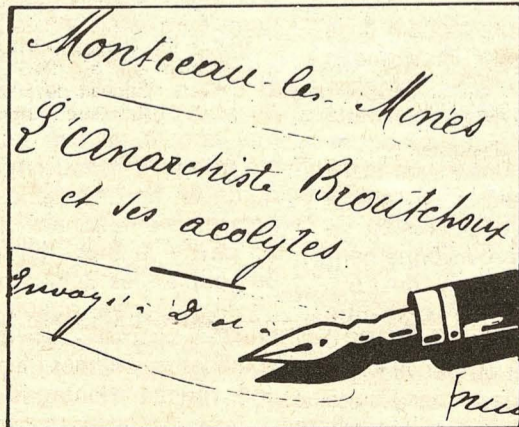 Montceau-les-Mines
L'Anarchiste Broutchoux
et ses acolytes